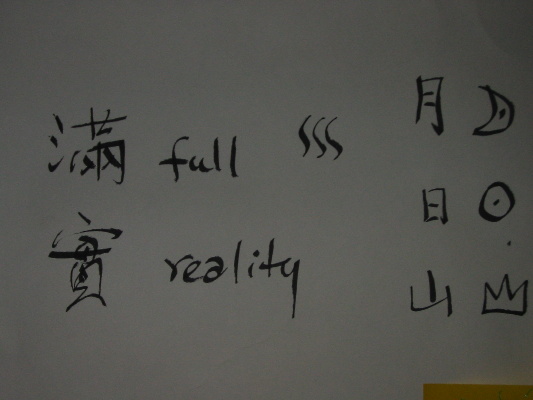 滿 full 月
日
實 reality 山